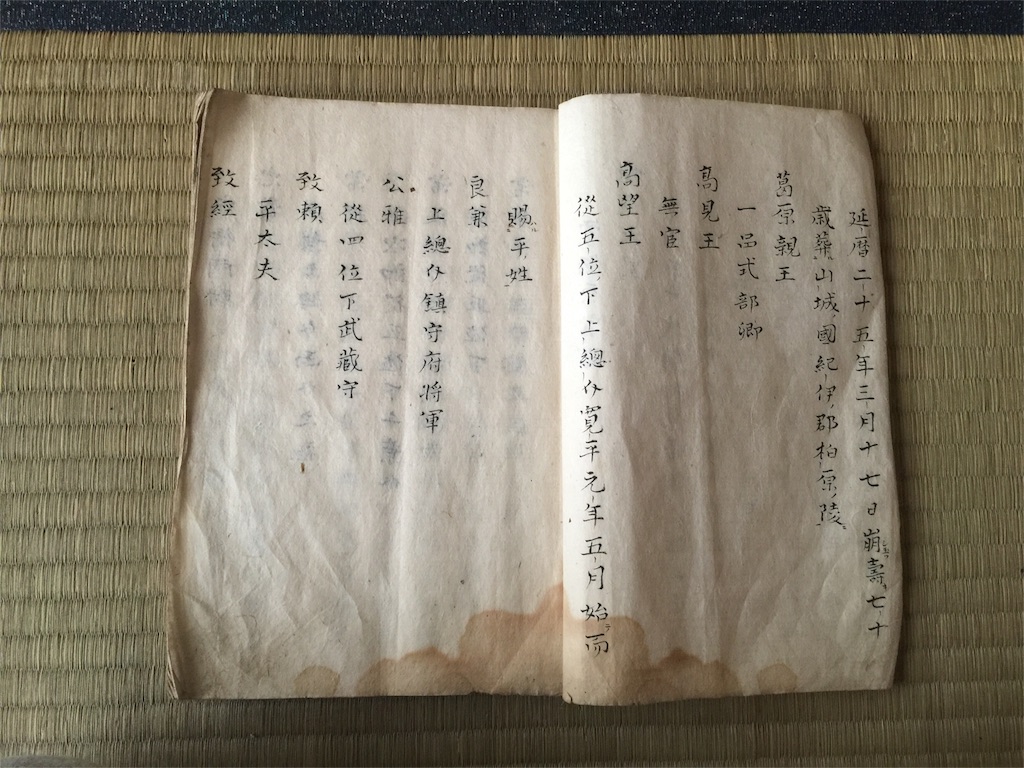 延暦二十五年三月十七日崩壽七十
歳葬山城國紀伊郡柏原陵
葛原親王
一品式部卿
高見王
無官
高望王
從五位下上總介寛平元年五月始而
賜平姓
良兼
上總介鎮守府将軍
公雅
從四位下武蔵守
致頼
平太夫
致經